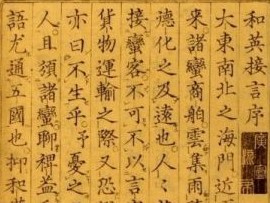 和英接言序
大東南北之海門近
来諸蠻商舶雲集雨
德化之及遠也人々
接蠻客不可不以言
貨物運輸之際又恐
亦曰不生乎予憂之
人且須諸蠻聊裨益
語尤通五國也抑和英